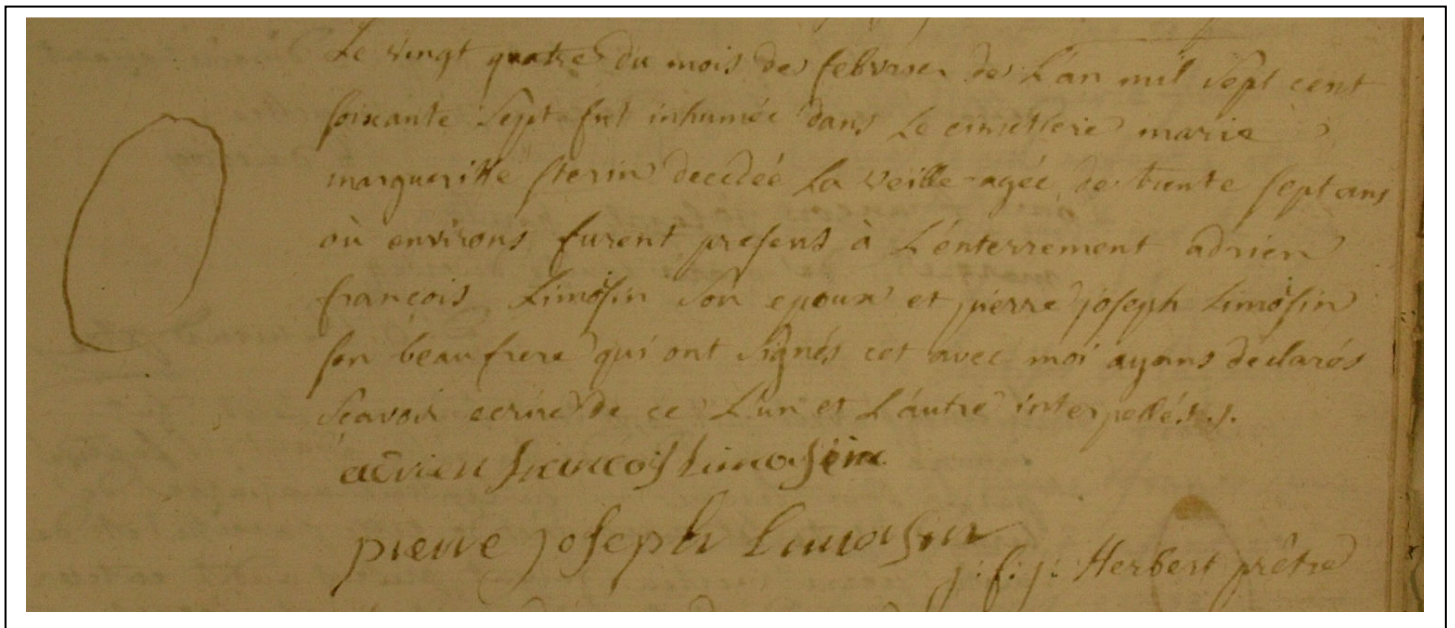 Le vingt quatre du mois de febvrier de L'an mil Sept cent
soixante Sept fut inhumée dans Le cimettere marie
margueritte sterin decedée La veille agée de trente sept ans
où environs furent presens à L'enterrement adrien
françois Limosin Son epoux et pierre joseph Limosin
son beau frere qui ont Signés cet avec moi ayans declarés
Scavoir ecrire de ce L'un et L'autre interpellés.
adrien francois Limosin
pierre joseph Limosin
j: f: j: Herbert prêtre